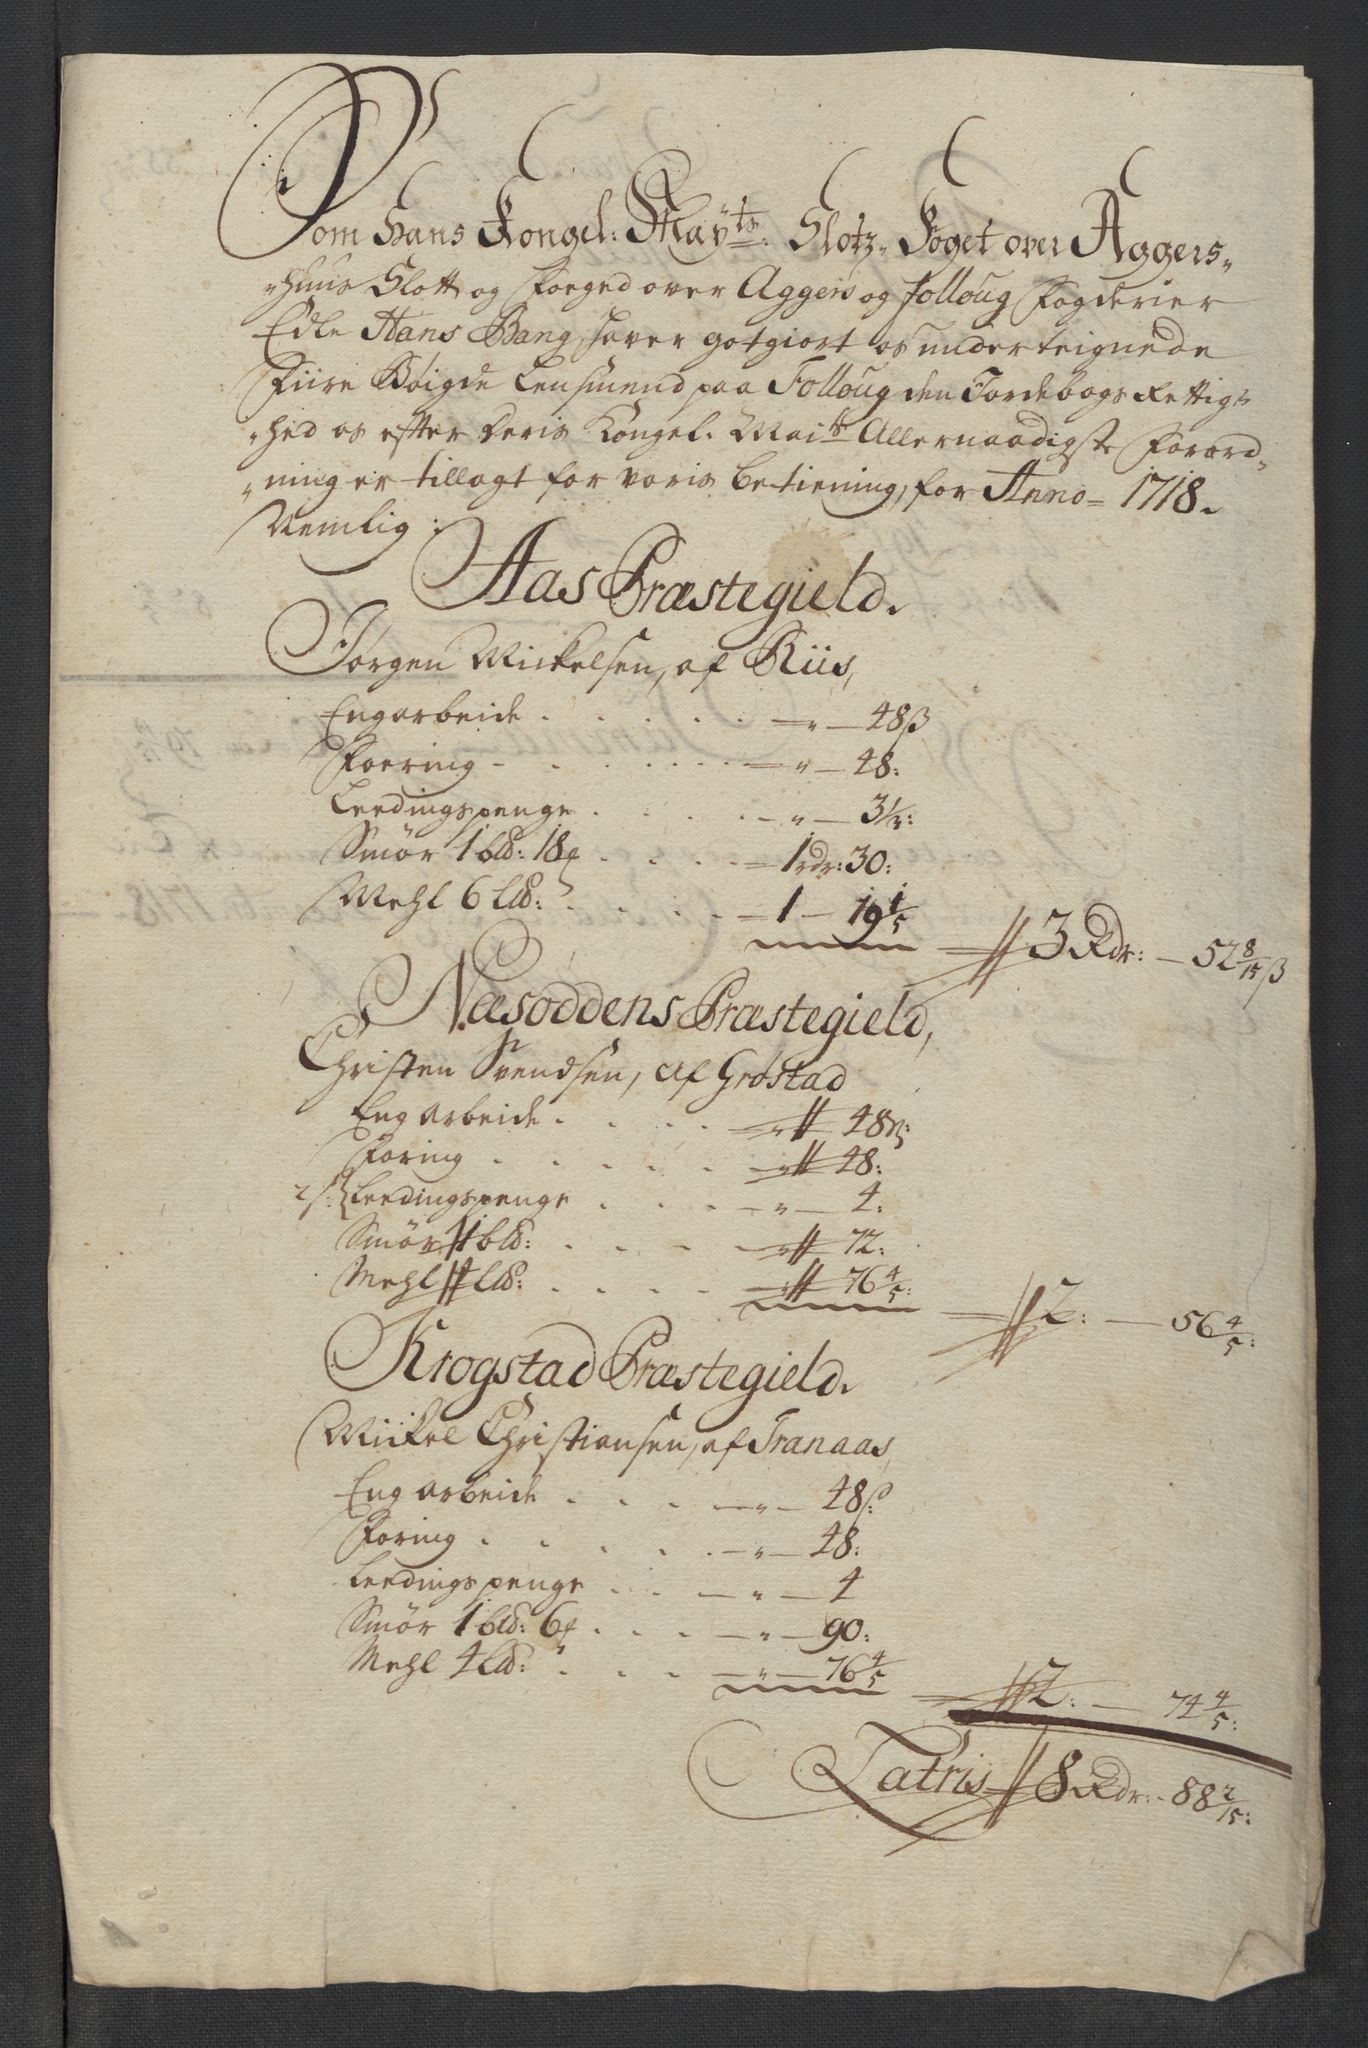 Som Hans Kongel: Mayts: Slotz- Foget over Aggers-
-huus Slott og Foeged over Aggers og Folloug Fogderier
Edle Hans Bang, hafver gotgiort os underteignede
Fiire Böigde Lensmend paa Folloug den Jordebogs Rettig-
-hed os efter Deris Kongel. Maits Allernaadigste Forord-
-ning er tillagt for voris betiening, for Anno 1718.
Nemlig:
Aas Præstegield.
Jørgen Mickelsen, af Riis,
Engarbeide . . . . . — " — 48 ß
Foering - . . . . . — " — 48:
Leedingspenge . . . . . - " — 3 1/3:
Smör 1 bld: 18 . . . — 1 rdr: 30:
Mehl 6 Lld: . . . . — 1 — 19 1/5
3 Rdr: — 52 8/15 ß
Næsoddens Præstegield,
Christen Svendsen, af Grøstad
Eng arbeide . . . . — " 48 ß:
Foring . . . . . — " 48:
Leedingspenge . . . — " — 4:
Smör 1 bld: . . . — " 72:
Mehl 4 Lld: . . . . — " 76 4/5:
2: — 56 4/5:
Krogstad Præstegield.
Mickel Christiansen, af Tranaas,
Eng arbeide . . . — " — 48 ß
Foring . . . . . — " — 48:
Leedingspenge . . . — " — 4
Smör 1 bld: 6 . . . — " — 90:
Mehl 4 Lld: . . . — " — 76 4/5
2: — 74 4/5:
Latris 8 Rdr: - 88 2/15: